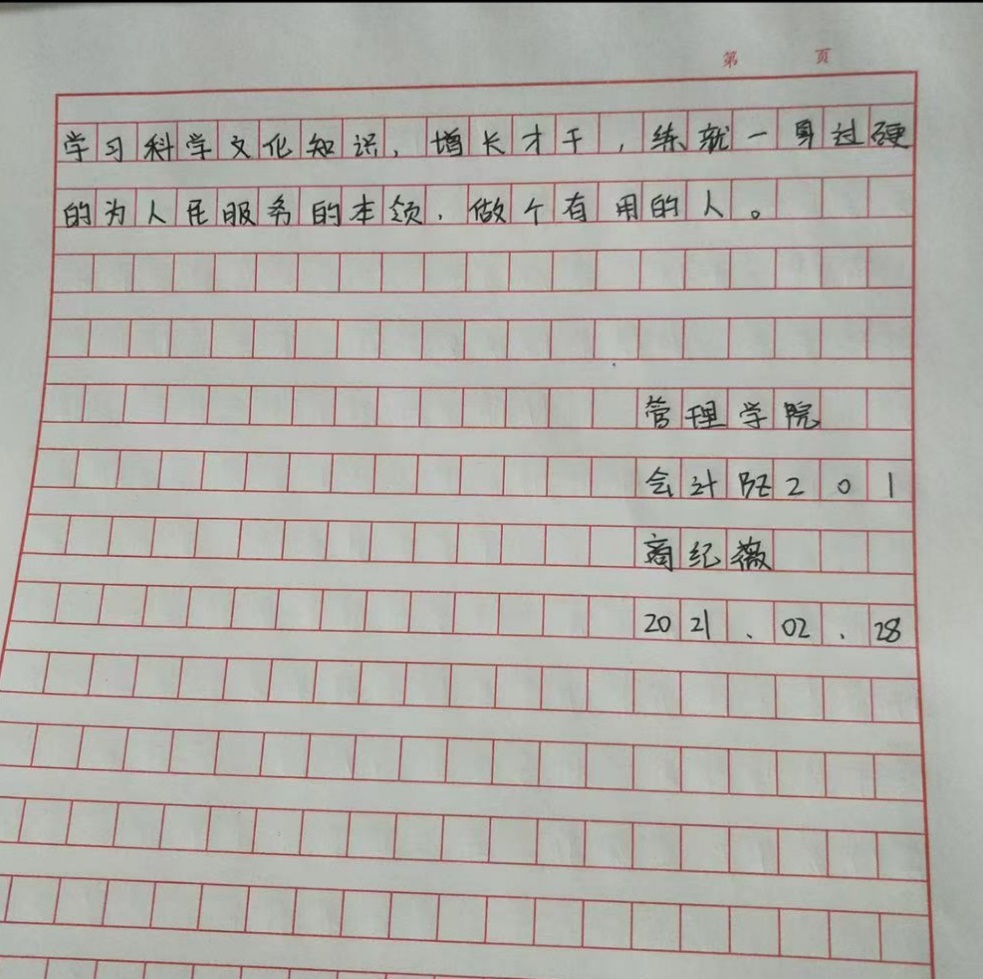 第 页
学习科学文化知识,增长才干,练就一身过硬
的为人民服务的本领,做个有用的人。
管理学院
会计BZ201
商纪薇
2021.02.28